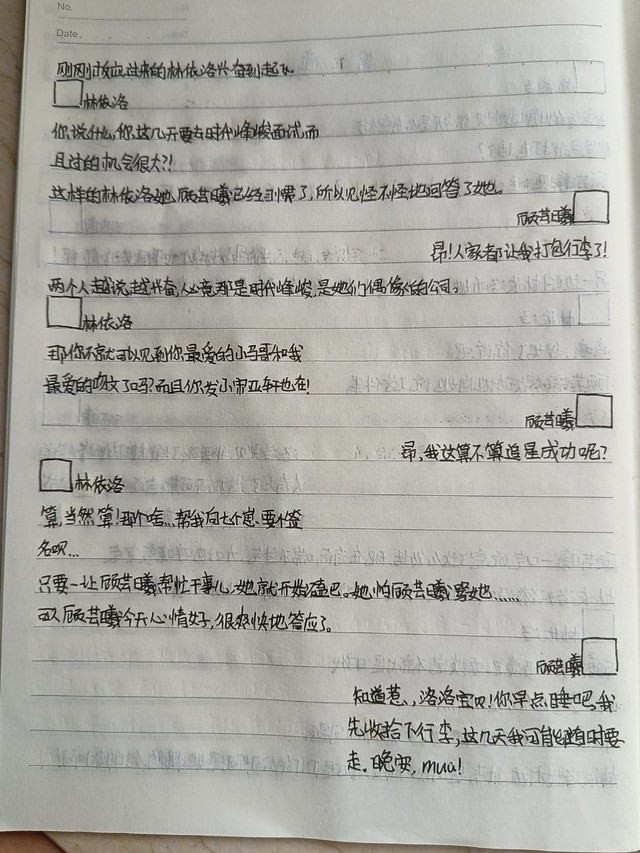 No.
Date.
刚刚反应过来的林依洛兴奋到起飞
林依洛
你说什么,你这几天要去时代峰峻面试,而
且过的机会很大?!
这样的林依洛她,顾芸曦已经习惯了,所以见怪不怪地回答了她。
顾芸曦
昂!人家都让我打包行李了!
两个人越说越兴奋,必竟那是时代峰峻,是她们偶像的公司。
林依洛
那你不就可以见到你最爱的小马哥和我
最爱的文了吗?而且你发小宋亚轩也在!
顾芸曦
昂,我这算不算追星成功呢?
林依洛
算,当然算!那个啥...帮我向七个崽要个签
名呗...
只要一让顾芸曦帮忙干事儿,她就开始磕巴。她怕顾芸曦骂她......
可顾芸曦今天心情好,很爽快地答应了。
顾芸曦
知道惹、洛洛宝贝!你早点睡吧,我
先收拾下行李,这几天我可能随时要
走。晚安,mua!